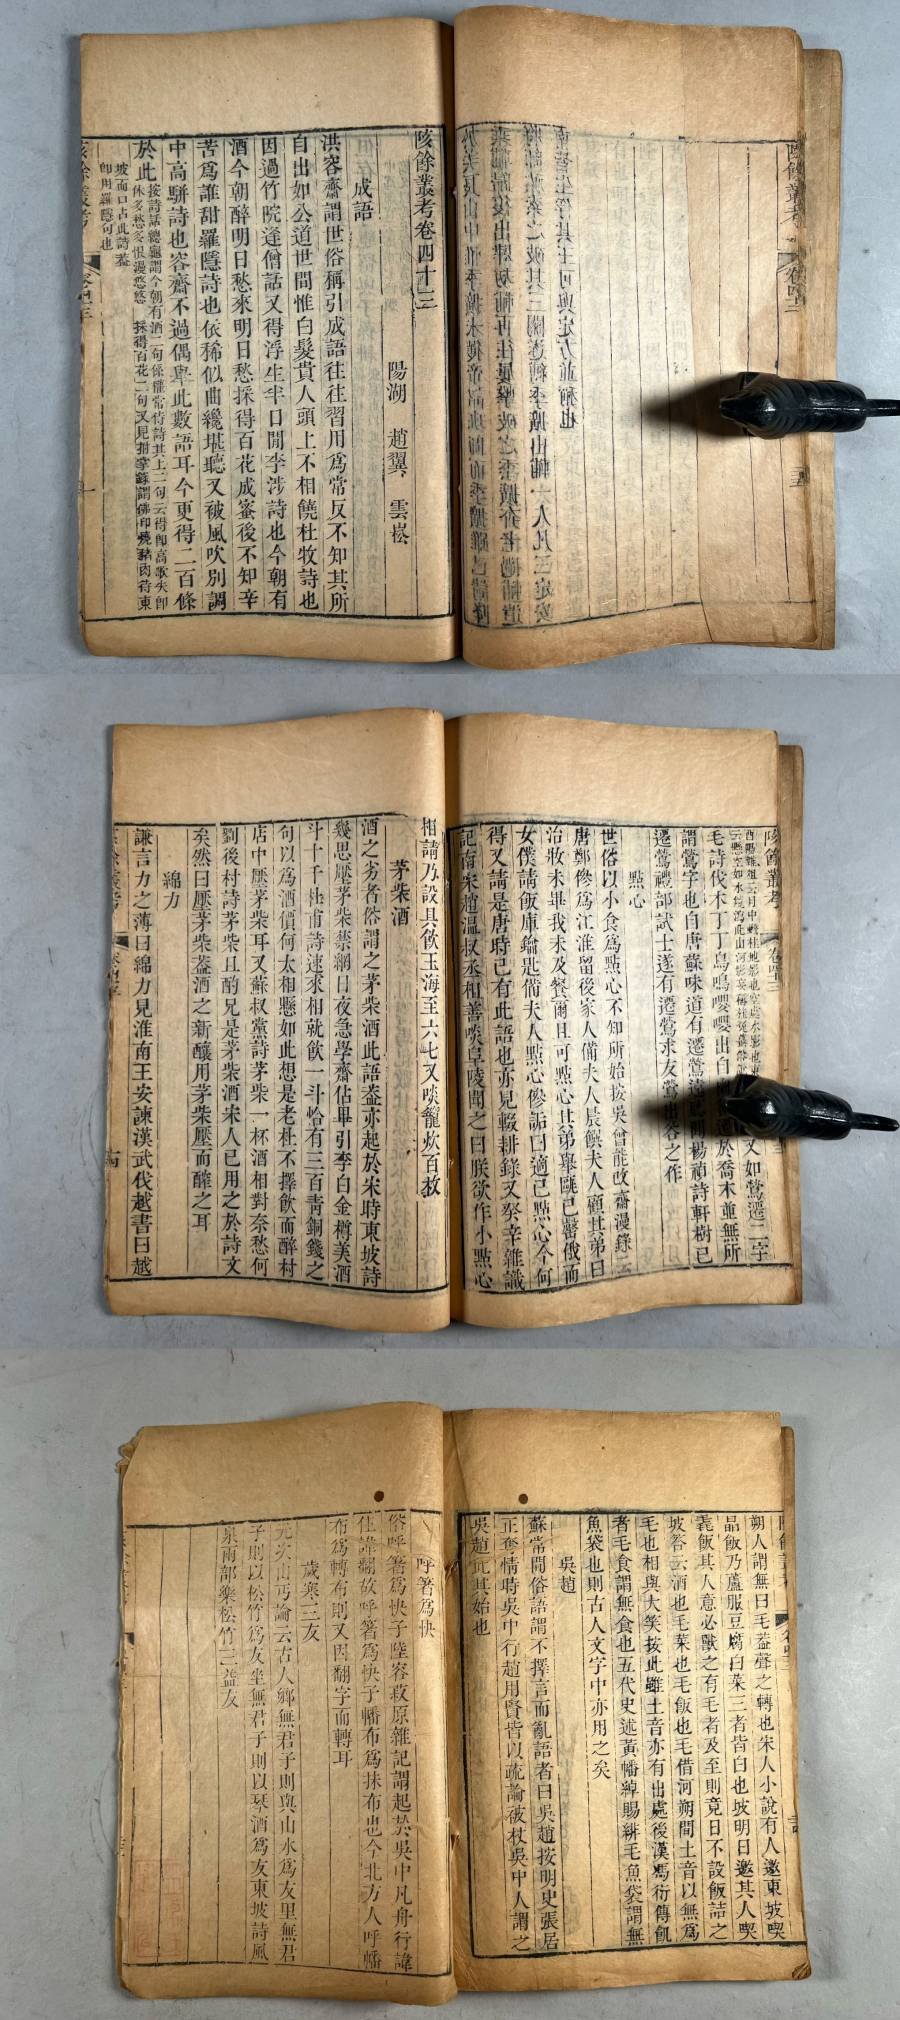 陔餘叢考卷四十三
陽湖 趙翼 雲崧
成語
洪容齋謂世俗稱引成語往往習用爲常反不知其所
自出如公道世間惟白髮貴人頭上不相饒杜牧詩也
因過竹院逢僧話又得浮生半日閒李涉詩也今朝有
酒今朝醉明日愁來明日愁採得百花成蜜後不知辛
苦爲誰甜羅隱詩也依稀似曲纔堪聽又被風吹別調
中高駢詩也容齋不過偶舉此數語耳今更得二百條
於此
按詩話總龜謂今朝有酒二句係權常侍詩其上二句云得卽高歌失卽
休多愁多恨漫悠悠 採得百花二句又見指掌錄謂佛印燒豬肉待東
坡而口占此詩蓋
卽用羅隱句也
又如鶯遷二字
毛詩伐木丁丁鳥鳴嚶嚶出自幽谷遷於喬木並無所
謂鶯字也自唐蘇味道有遷鶯遠
楊禎詩軒樹已
遷鶯禮部試士遂有遷鶯求友鶯出谷之作
點心
世俗以小食爲點心不知所始按吳曾能改齋漫錄云
唐鄭傪爲江淮留後家人備夫人晨饌夫人顧其弟曰
治妝未畢我未及餐爾且可點心其弟舉甌已罄俄而
女僕請飯庫鑰匙備夫人點心傪詬曰適已點心今何
得又請是唐時已有此語也亦見輟耕錄又癸辛雜識
記南宋趙溫叔丞相善啖阜陵聞之曰朕欲作小點心
相請乃設具飲玉海至六七又啖籠炊百枚
茅柴酒
酒之劣者俗謂之茅柴酒此語蓋亦起於宋時東坡詩
幾思壓茅柴禁網日夜急學齋佔畢引李白金樽美酒
斗十千杜甫詩速來相就飲一斗恰有三百青銅錢之
句以爲酒價何太相懸如此想是老杜不擇飲而醉村
店中壓茅柴耳又蘇叔黨詩茅柴一杯酒相對奈愁何
劉後村詩茅柴且酌兄是茅柴酒宋人已用之於詩文
矣然曰壓茅柴蓋酒之新釀用茅柴壓而醡之耳
綿力
謙言力之薄曰綿力見淮南王安諫漢武伐越書曰越
朔人謂無曰毛蓋聲之轉也宋人小說有人邀東坡喫
皛飯乃蘆服豆腐白菜三者皆白也坡明日邀其人喫
毳飯其人意必獸之有毛者及至則竟日不設飯詰之
坡答云酒也毛菜也毛飯也毛借河朔間土音以無爲
毛也相與大笑按此雖土音亦有出處後漢馮衍傳飢
者毛食謂無食也五代史述黃幡綽賜緋毛魚袋謂無
魚袋也則古人文字中亦用之矣
吳趙
蘇常間俗語謂不擇言而亂語者曰吳趙按明史張居
正奪情時吳中行趙用賢皆以疏論被杖吳中人謂之
吳趙此其始也
呼箸爲快
俗呼箸爲快子陸容菽原雜記謂起於吳中凡舟行諱
住諱翻故呼箸爲快子幡布爲抹布也今北方人呼幡
布爲轉布則又因翻字而轉耳
歲寒三友
元次山丐論云古人鄉無君子則與山水爲友里無君
子則以松竹爲友坐無君子則以琴酒爲友東坡詩風
泉兩部樂松竹三益友